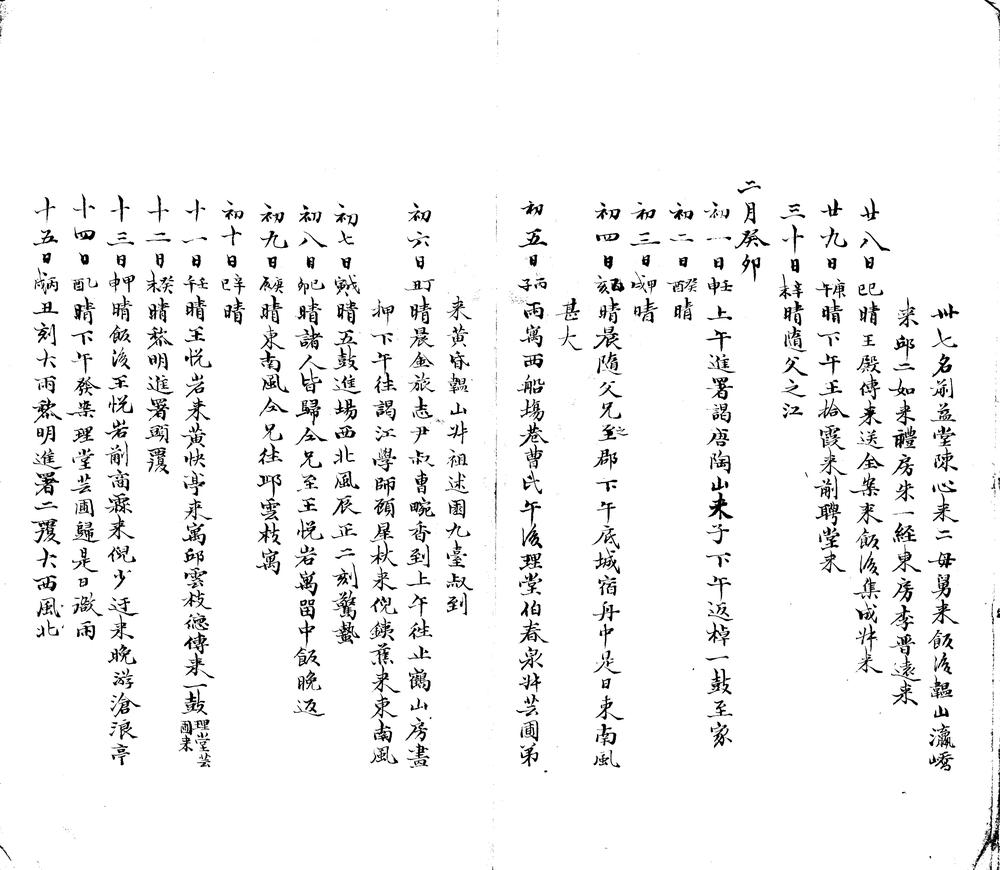 卅七名前益堂陳心来二毋舅来飯后韞山瀛嶠
来邱二如来禮房朱一経東房李晋遠来
廿八日己巳晴王殿傳来送全案来飯後集成艸来
廿九日庚午晴下午王拾霞来前聘堂来
三十日辛未晴隨父之江
二月癸卯
初一日壬申上午進署謁唐陶山夫子下午返棹一鼓至家
初二日癸酉晴
初三日甲戌晴
初四日乙亥晴晨隨父兄至郡下午底城宿舟中是日東南風
甚大
初五日丙子雨寓西船塲巷曹氏午後理堂伯春泉艸芸圃弟
来黄昏韞山艸祖述園九臺叔到
初六日丁丑晴晨金旅志尹叔曹畹香到上午往止鶴山房畫
押下午往謁江學師顧星秋来倪鉄蕉来東南風
初七日戊寅晴五鼓進塲西北風辰正二刻驚蟄
初八日己卯晴諸人皆歸仝兄至王悦岩萬畱中飯晚返
初九日庚辰晴東南風仝兄往邱雲枝寓
初十日辛巳晴
十一日壬午晴王悦岩来黄快亭来寓邱雲枝德傳来一鼓理堂芸圃来
十二日癸未晴黎明進署頭覆
十三日甲申晴飯後王悦岩前商霖来倪少迂来晚游滄浪亭
十四日乙酉晴下午發案理堂芸圃歸是日微雨
十五日丙戌丑刻大雨黎明進署二覆大西風北